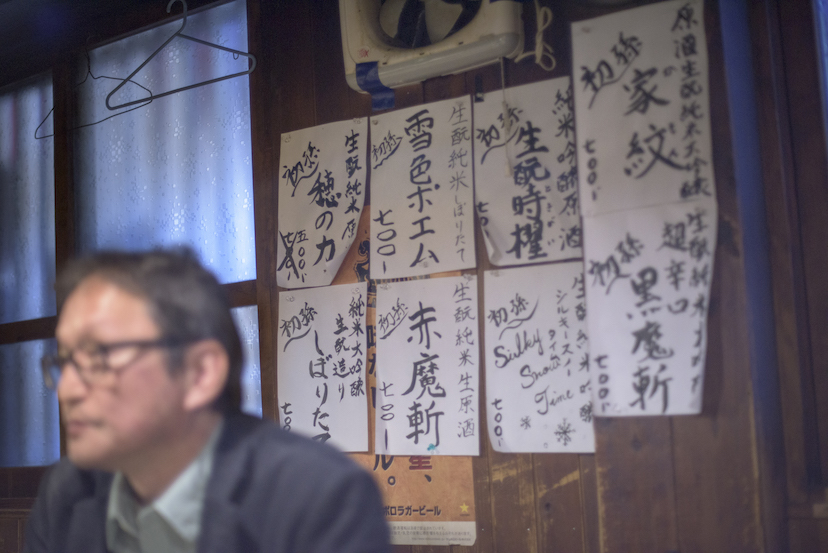 生酛純米原
初孫
穂の力
五〇〇
生酛純米しぼりたて
初孫
雪色ポエム
七〇〇
純米吟醸原酒
初孫
生酛時櫂
七〇
原酒生酛純米大吟醸
初孫
家紋
七〇〇
純米大吟醸
生酛造り
初孫
しぼりた
七〇〇
生酛純米生原酒
初孫
赤魔斬
七〇〇
シルキースノー
タイム
初孫
Silky
Snow
Time
七〇〇
生酛純米
超辛口
初孫
黒魔斬
七〇〇
星、
ル。
ポロラガービール